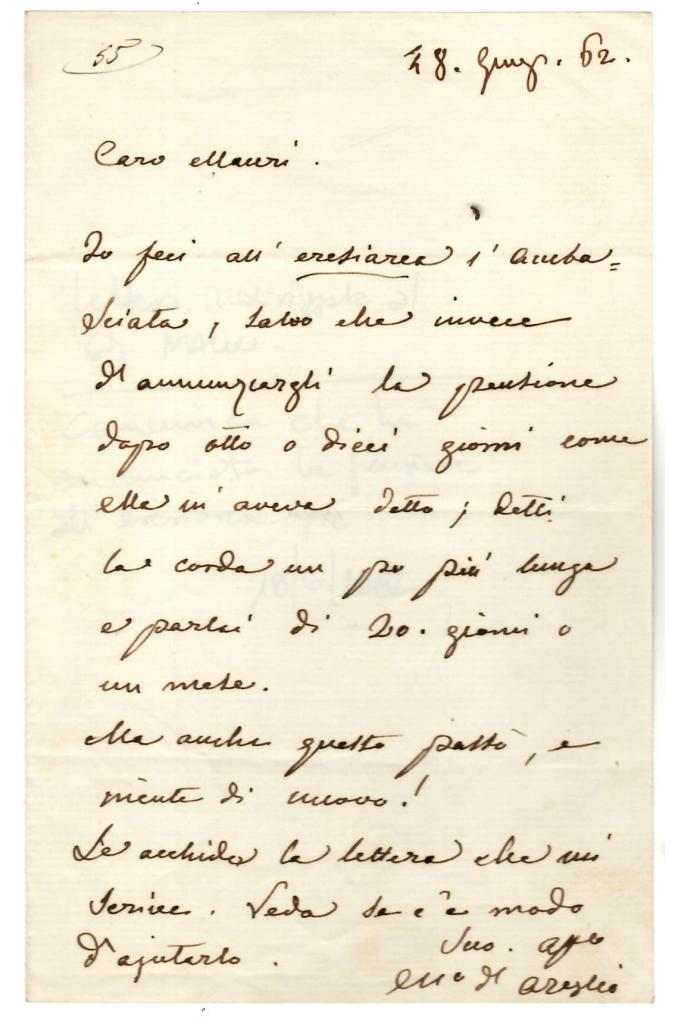 55
18. Giug. 62.
Caro Mauri.
Io feci all' eresiarca l' Amba=
sciata, salvo che invece
d'annunziargli la pensione
dopo otto o dieci giorni come
ella m'aveva detto; detti
la corda un po più lunga
e parlai di 20. giorni o
un mese.
Ma anche questo passò, e
niente di nuovo!
Le acchiudo la lettera che mi
scrive. Veda se c'è modo
d'ajutarlo.
Suo. affo
Mo d'Azeglio